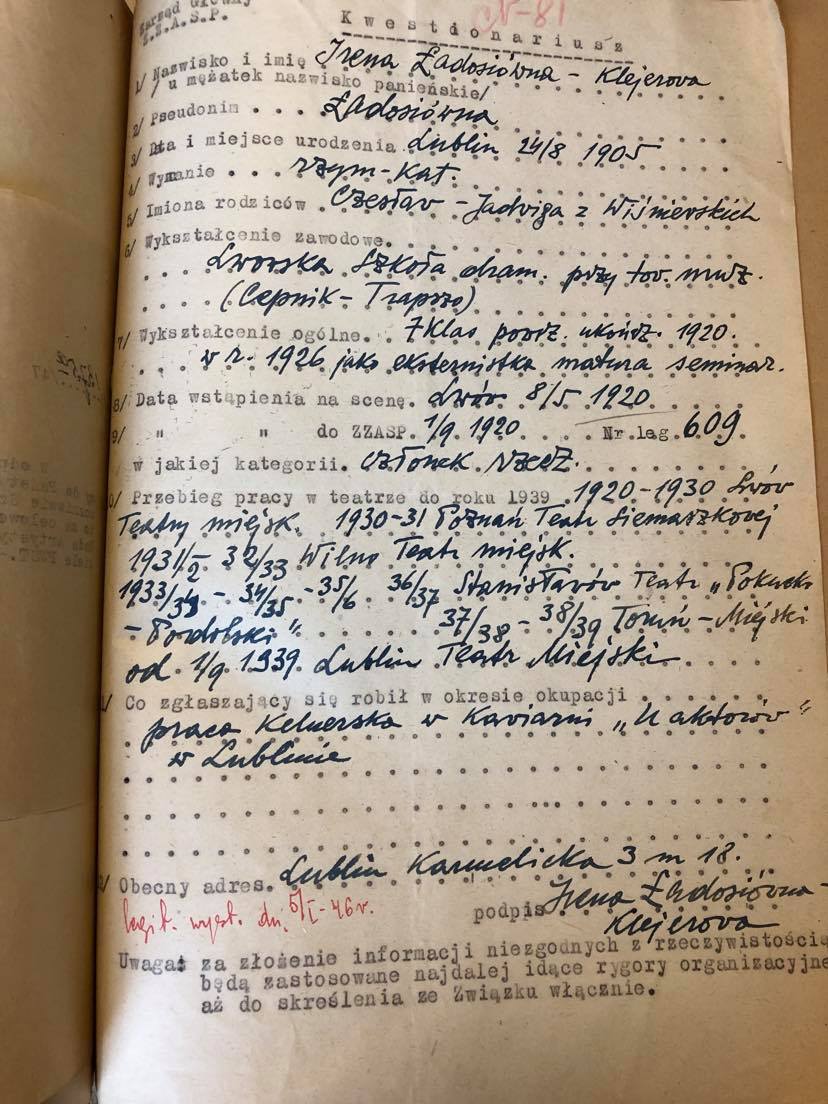 Zarząd Główny
Z.Z.A.S.P.
N-81
Kwestionariusz
1/ Nazwisko i imię Irena Ładosiówna - Klejerova
/ u mężatek nazwisko panieńskie/
2/ Pseudonim . . . Ładosiówna
3/ Data i miejsce urodzenia Lublin 24/8 1905
4/ Wyznanie . . . rzym-kat.
5/ Imiona rodziców . Czesłav - Jadviga z Wiśnievskich
6/ Wykształcenie zawodowe.
Lvovska Szkoła dram. przy tov. muz.
(Cepnik - Trapszo)
7/ Wykształcenie ogólne. . 7 Klas povsz. ukończ. 1920.
w r. 1926 jako eksternistka matura seminar.
8/ Data wstąpienia na scenę. Lvóv 8/5 1920
9/ " " do ZZASP. 1/9. 1920. Nr leg. 609.
w jakiej kategorii. członek rzecz.
0/ Przebieg pracy w teatrze do roku 1939 . 1920-1930 Lvóv
Teatry miejsk. 1930-31 Poznań Teatr Siemaszkovej
1931/2 32/33 Wilno Teatr miejsk.
1933/34 - 34/35 - 35/6 36/37 Stanisłavóv Teatr „Pokucko
- Podolski" 37/38 - 38/39 Toruń - Miejski
od 1/9 1939 Lublin Teatr Miejski
1/ Co zgłaszający się robił w okresie okupacji . . . . .
praca Kelnerska w Kaviarni „U aktoróv"
w Lublinie
2/ Obecny adres. Lublin Karmelicka 3 m 18.
legit. wyst. dn. 5/I-46 r.
podpis Irena Ładosióvna-
Klejerova
Uwaga: za złożenie informacji niezgodnych z rzeczywistością
będą zastosowane najdalej idące rygory organizacyjne
aż do skreślenia ze Związku włącznie.